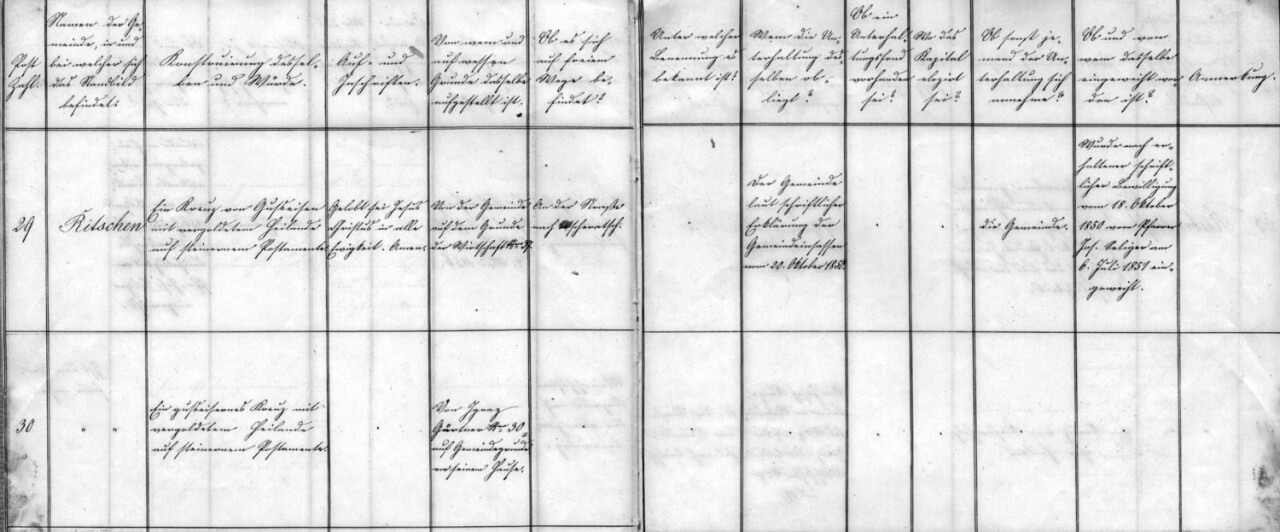 Post
Zahl.
Namen der Ge-
meinde, in und
bei welcher sich
das Standbild
befindet:
Konstruirung dessel-
ben und Würde.
Auf- und
Inschriften.
Von wem und
auf wessen
Grunde dasselbe
aufgestellt ist.
Ob es sich
auf freiem
Wege be-
findet?
Unter welcher
Benennung es
bekannt ist?
Wem die Un-
terhaltung des-
selben ob-
liegt?
Ob ein
Unterhal-
tungsfond
vorhanden
sei?
Wo das
Kapital
elozirt
sei?
Ob sonst je-
mand der Un-
terhaltung sich
annehme?
Ob und von
wem dasselbe
eingeweiht wor-
den ist?
Anmerkung.
29
Ritschen
Ein Kreuz von Gußeisen
mit vergoldetem Heilande
auf steinernem Postamente.
Gelobt sei Jesus
Christus in alle
Ewigkeit. Amen.
Von der Gemeinde
auf dem Grunde
der Wirtschaft Nr.
An der Straße
nach
Der Gemeinde
laut schriftlicher
Erklärung der
Gemeindeinsassen
vom 20. Oktober 1850.
die Gemeinde.
Wurde nach er-
haltener schrift-
licher Bewilligung
vom 18. Oktober
1850 vom Pfarrer
Jos. Seliger am
6. Juli 1851 ein-
geweiht.
30
" "
Ein gußeisernes Kreuz mit
vergoldetem Heilande
auf steinernem Postamente.
Von Ignaz
Gürtner Nr. 30
auf Gemeindegrunde
vor seinem Hause.